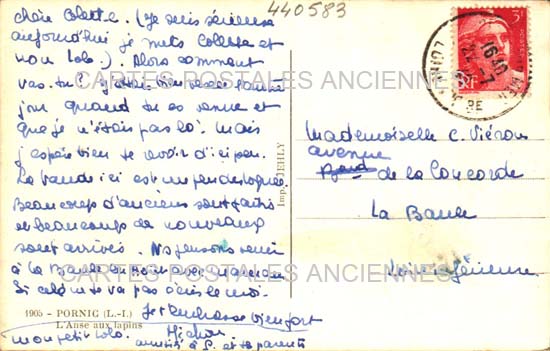 440583
chère Colette. (Je suis sérieuse
aujourd'hui je mets Colette et
non Lolo.) Alors comment
vas-tu?
jour quand tu as sonné et
que je n'étais pas là. Mais
j'espère bien te revoir d'ici peu.
La bande ici est un peu disloquée
Beaucoup d'anciens sont partis
et beaucoup de nouveaux
sont arrivés. Ns pensons venir
à La Baule
Si cela ne te va pas écris le moi.
Je t'embrasse bien fort
mon petit Lolo. Michou
amitié à P. et ta parenté
1905 - PORNIC (L.-I.)
L'Anse aux lapins
Imp. JEHLY
3F
RF
16H30
Mademoiselle C. Viéron
avenue
de la Concorde
La Baule
Loire Inférieure
CARTES POSTALES ANCIENNES
CARTES POSTALES ANCIENNES